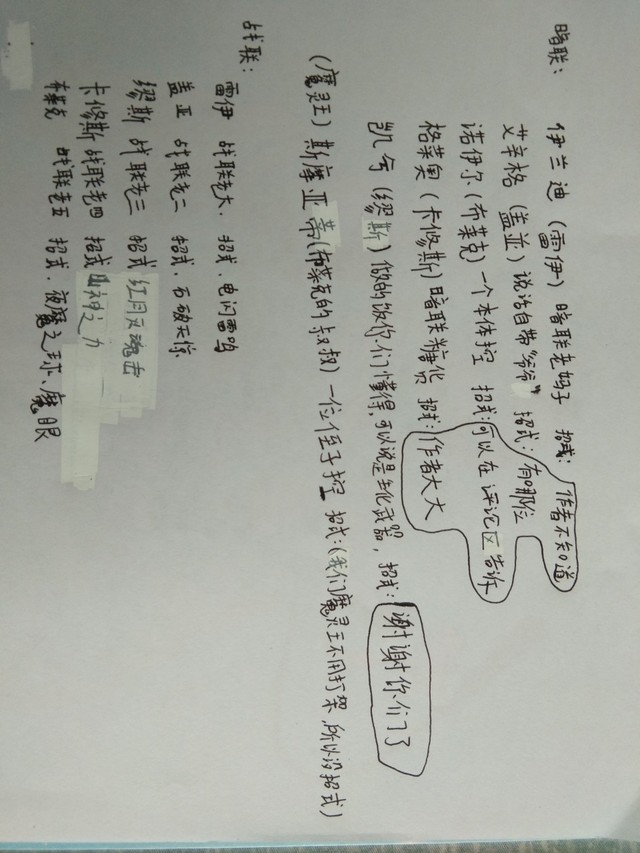 暗联：
伊兰迪（雷伊）暗联老妈子 招式：作者不知道
艾辛格（盖亚）说话自带“爷爷” 招式：有哪位
诺伊尔（布莱克）一个本体控 招式：可以在评论区告诉
格莱奥（卡修斯）暗联糖货 招式：作者大大
凯兮（缪斯）做的饭你们懂得，可以说是生化武器，招式：谢谢你们了
（魔灵王）斯摩亚蒂（布莱克的叔叔）一位侄子控 招式：（我们魔灵王不用打架，所以没招式）
战联：
雷伊 战联老大、招式、电闪雷鸣
盖亚 战联老二 招式、石破天惊
缪斯 战联老三 招式 红月灭魂击
卡修斯 战联老四 招式 山神之力
布莱克 战联老五 招式、夜魔之球、魔眼